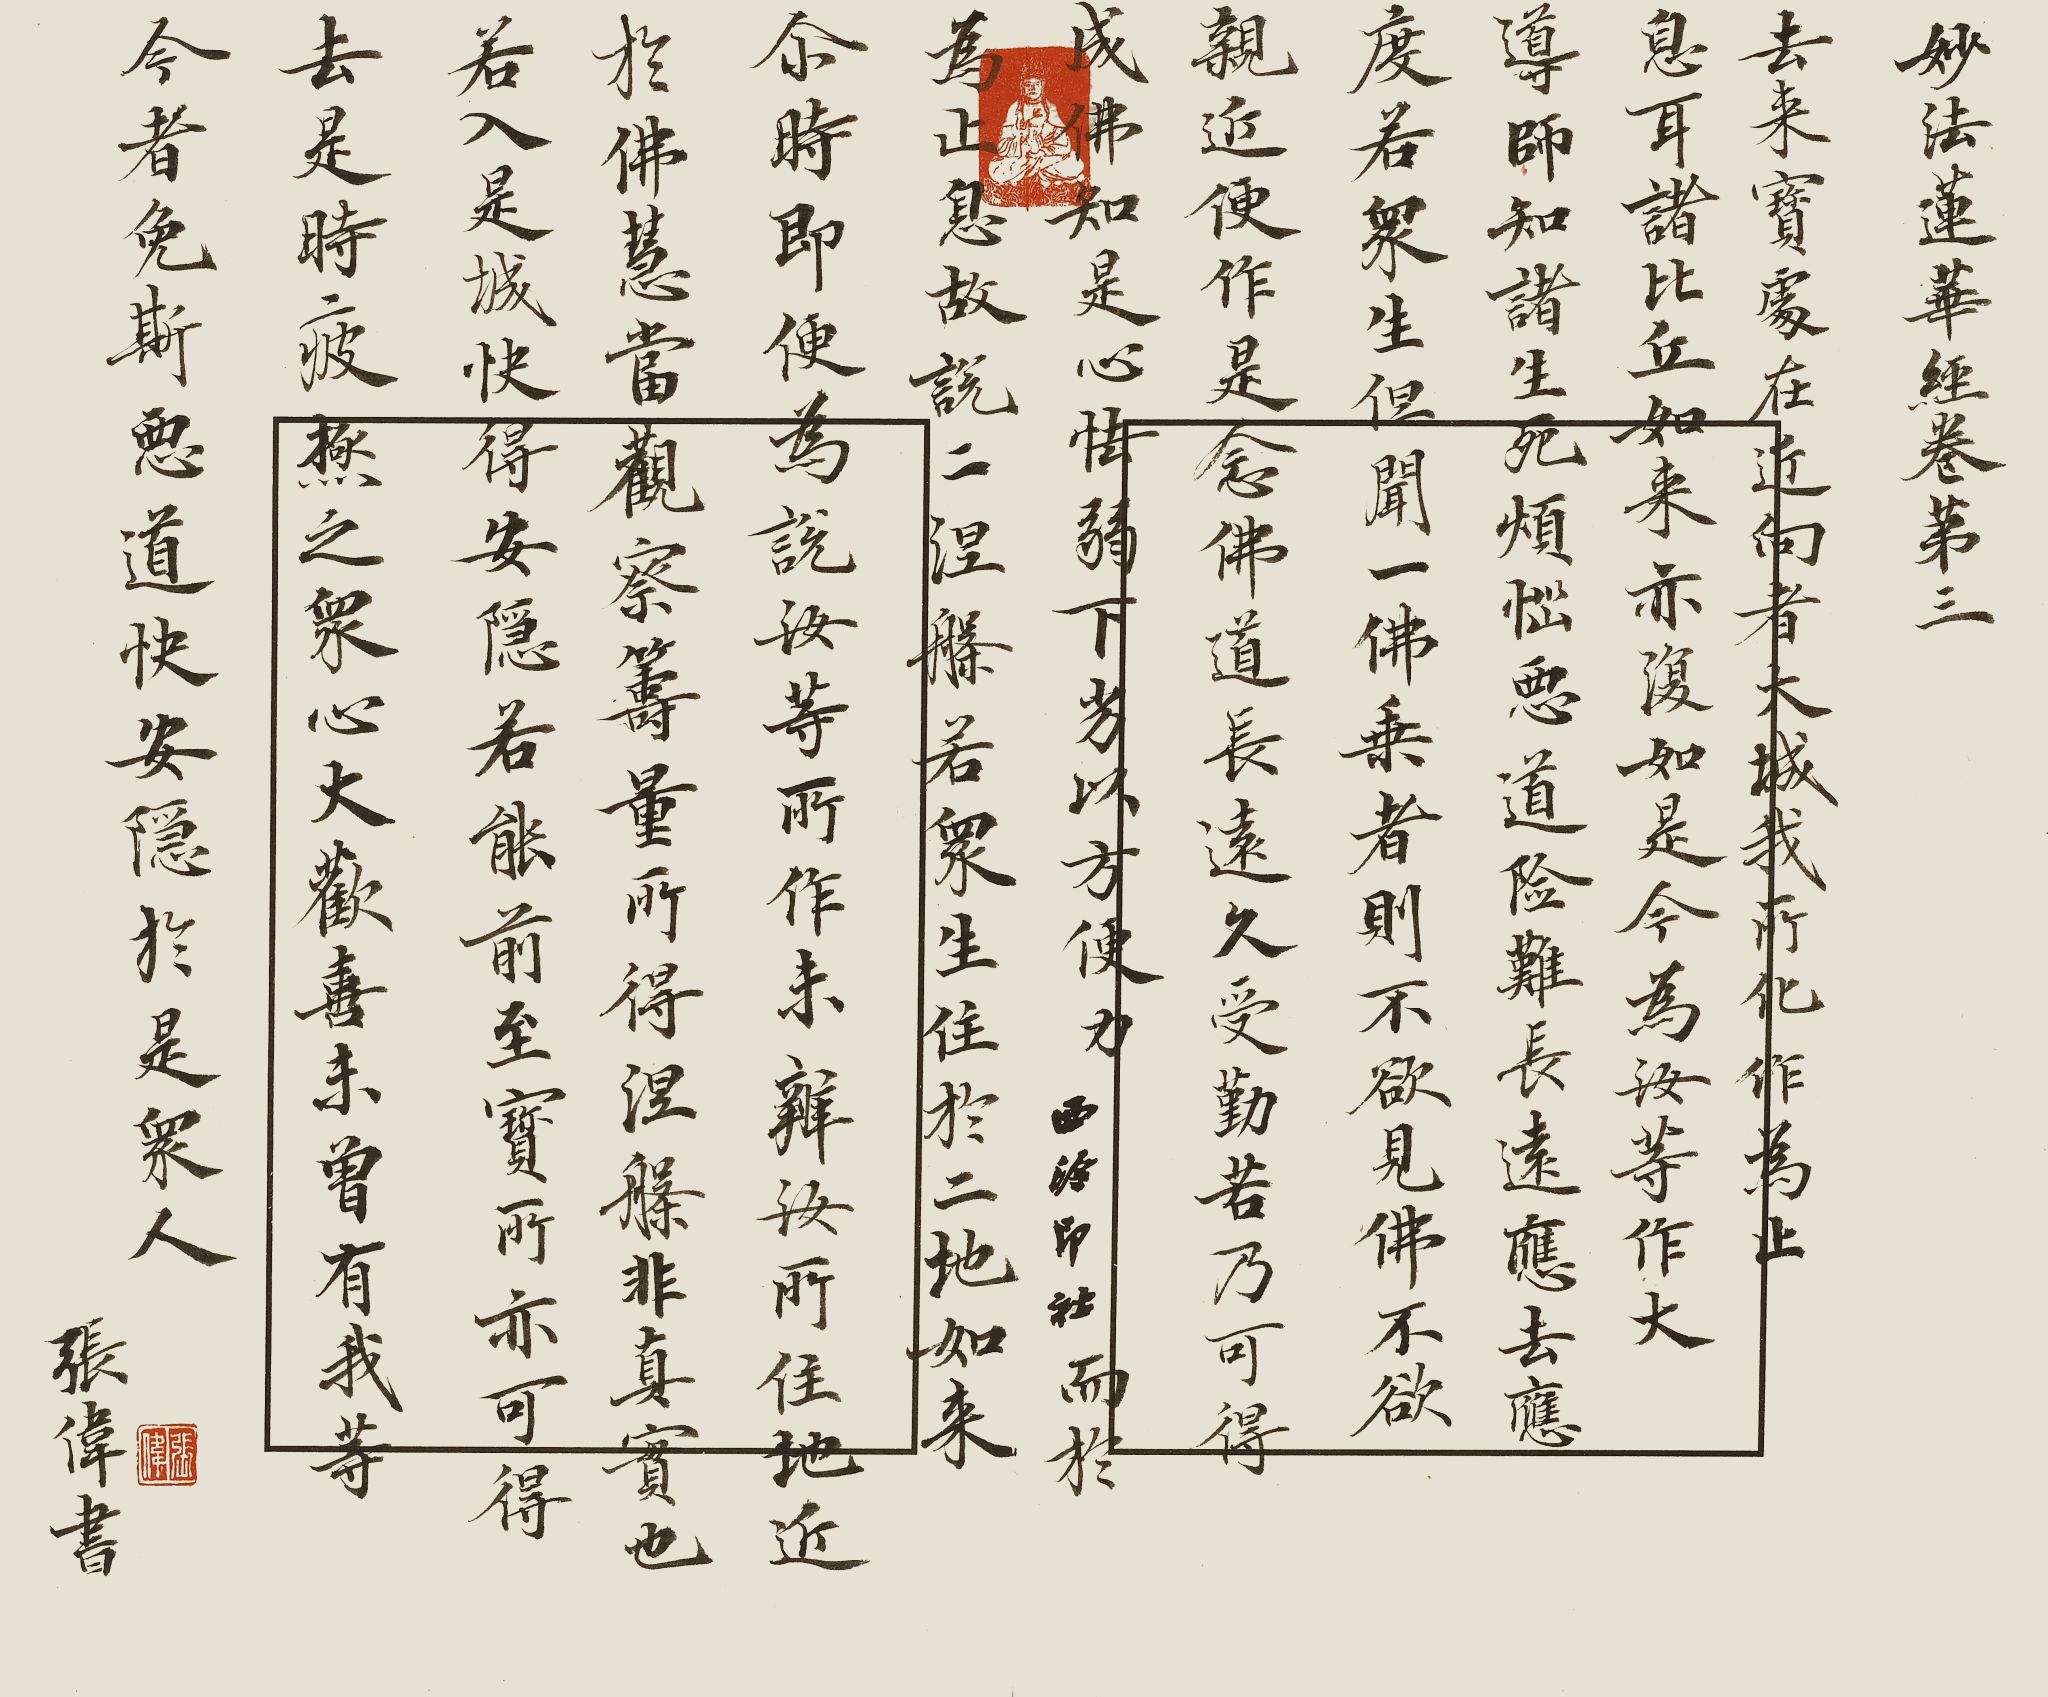 妙法蓮華經卷第三
去来寶處在近向者大城我所化作為止
息耳諸比丘如来亦復如是今為汝等作大
導師知諸生死煩惱惡道险難長遠應去應
度若眾生但聞一佛乗者則不欲見佛不欲
親近便作是念佛道長遠久受勤苦乃可得
成佛知是心怯弱下劣以方便力
西泠印社
而於
為止息故説二涅槃若眾生住於二地如来
尒時即便為説汝等所作未辦汝所住地近
於佛慧當觀察籌量所得涅槃非真實也
若入是城快得安隠若能前至寶所亦可得
去是時疲極之眾心大歡喜未曾有我等
今者免斯惡道快安隠於是眾人
張偉書
張偉